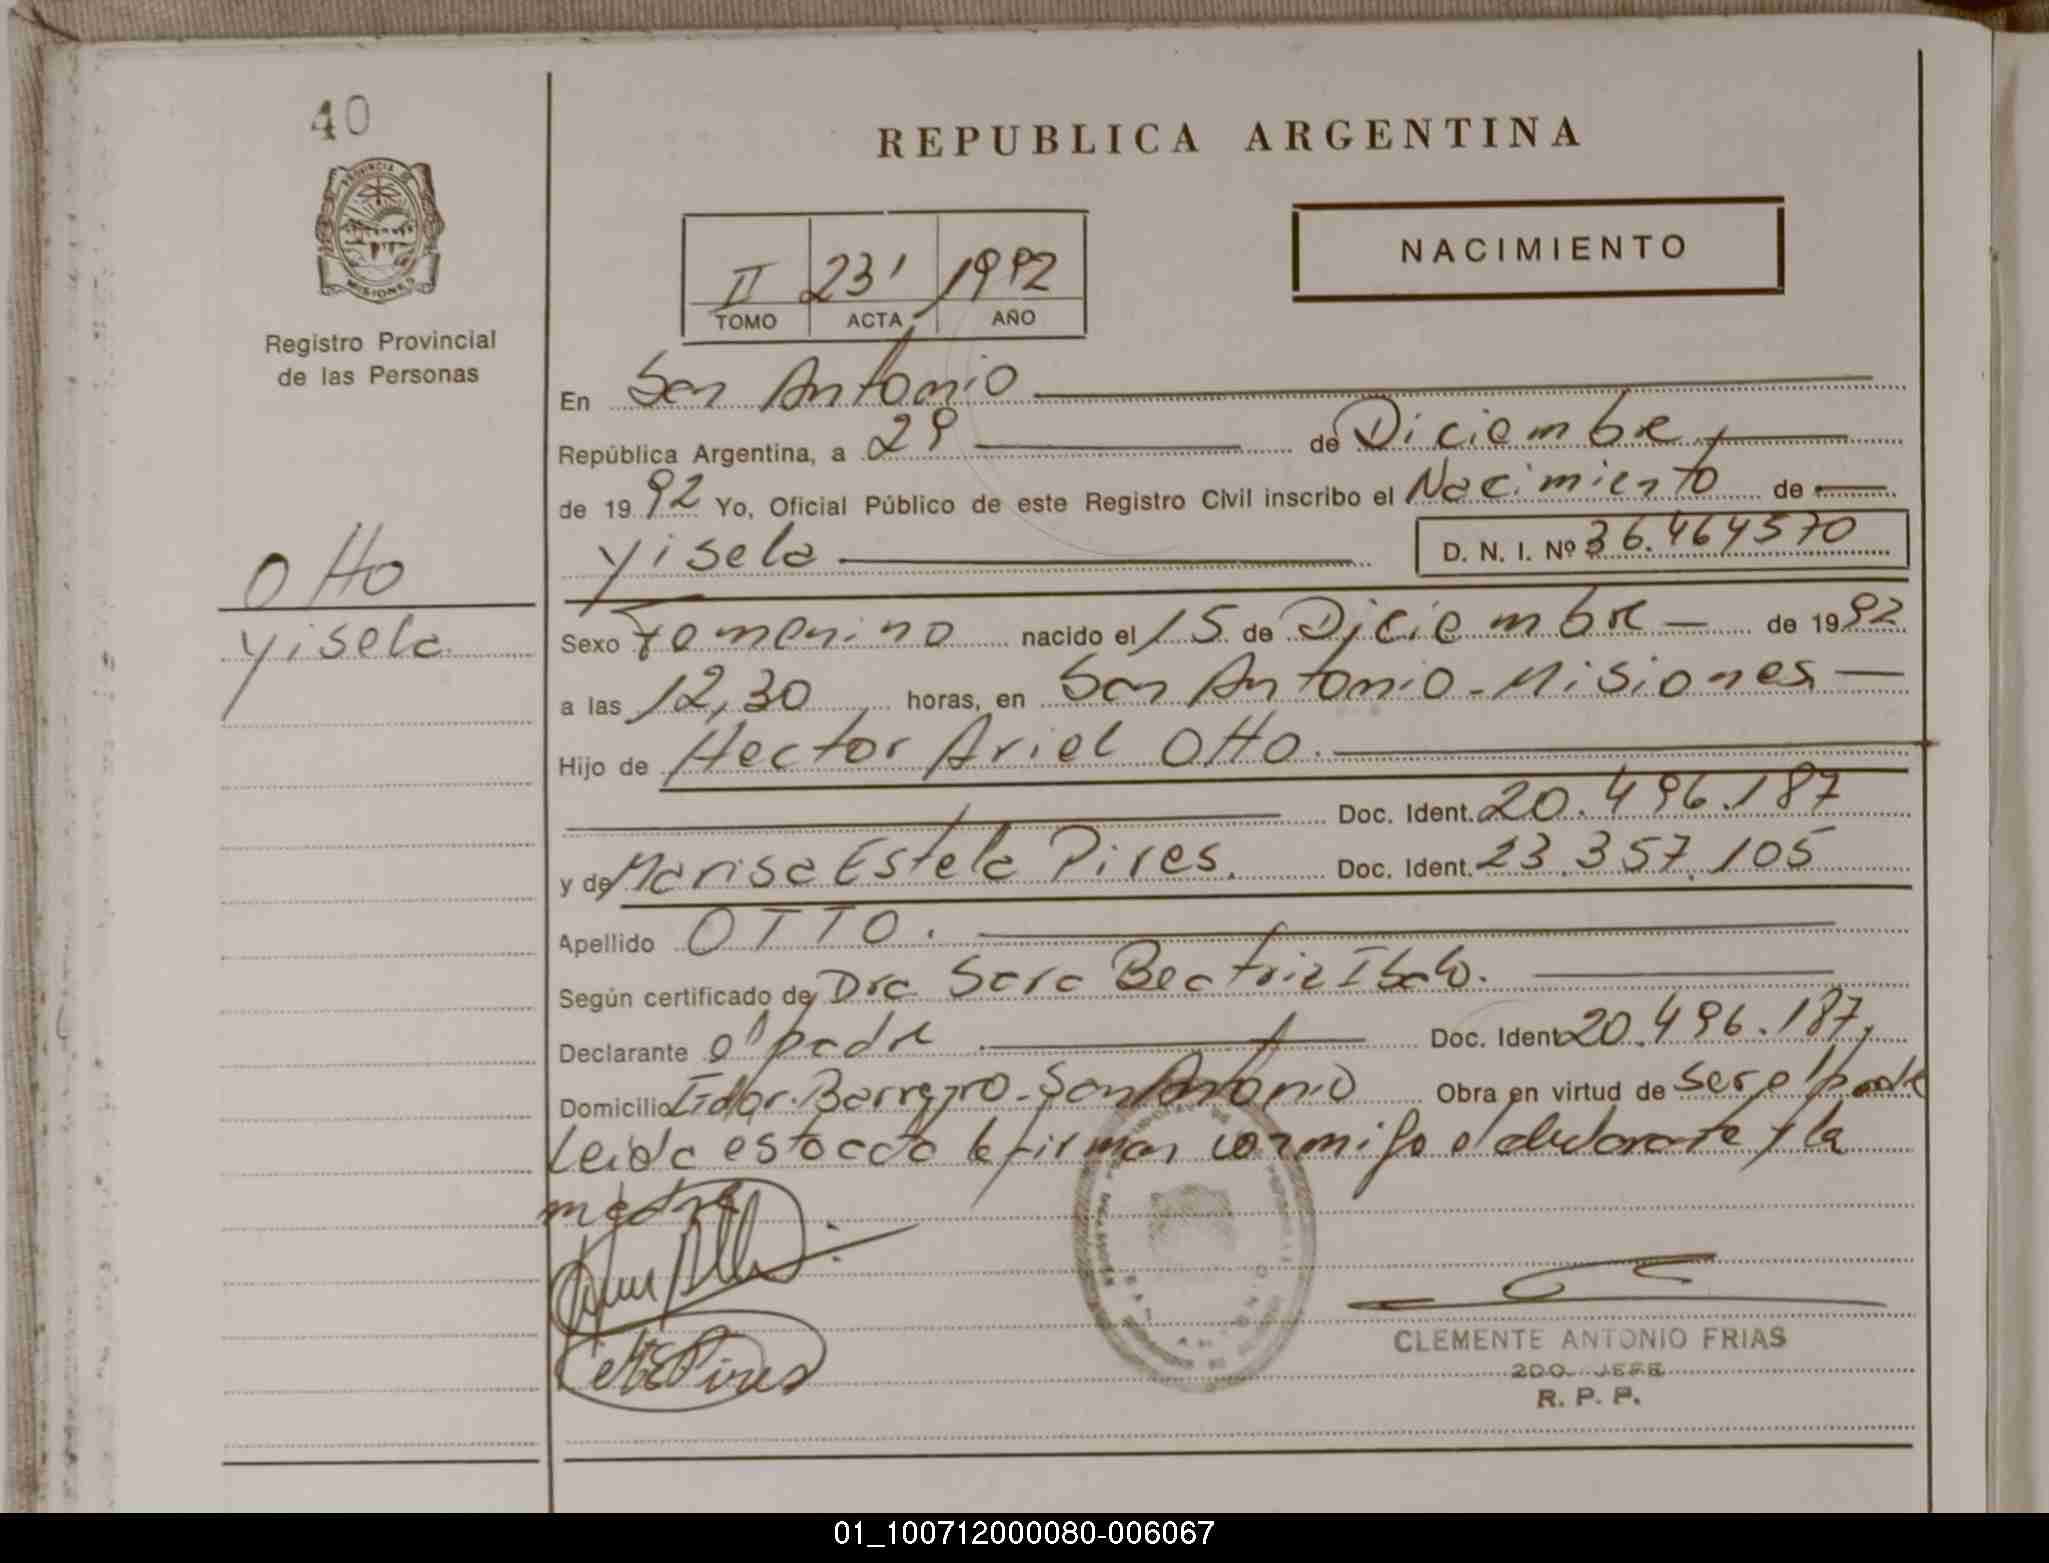 40
REPUBLICA ARGENTINA
PROVINCIA DE
MISIONES
Registro Provincial
de las Personas
II 23' 1992
TOMO ACTA AÑO
NACIMIENTO
En San Antonio
República Argentina, a 29 de Diciembre
de 1992 Yo, Oficial Público de este Registro Civil inscribo el Nacimiento de
Yisela D. N. I. Nº 36.464570
Otto
Yisela
Sexo Femenino nacido el 15 de Diciembre de 1992
a las 12,30 horas, en San Antonio - Misiones
Hijo de Hector Ariel Otto.
Doc. Ident. 20.496.187
y de Marisa Estela Pires. Doc. Ident. 23.357.105
Apellido OTTO.
Según certificado de Dra Sara Beatriz
Declarante el padre Doc. Ident. 20.496.187,
Domicilio San Antonio Obra en virtud de ser el padre
Leida esta acta la firman conmigo el declarante y la
madre
Pires
CLEMENTE ANTONIO FRIAS
2DO. JEFE
R. P. P.
01_100712000080-006067